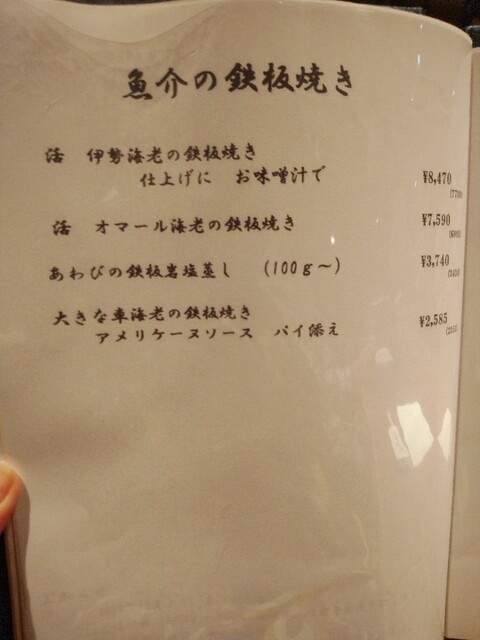 魚介の鉄板焼き
活　伊勢海老の鉄板焼き
仕上げに　お味噌汁で　¥8,470
(7700)
活　オマール海老の鉄板焼き　¥7,590
あわびの鉄板岩塩蒸し　(100g〜)　¥3,740
大きな車海老の鉄板焼き　¥2,585
アメリケーヌソース　パイ添え